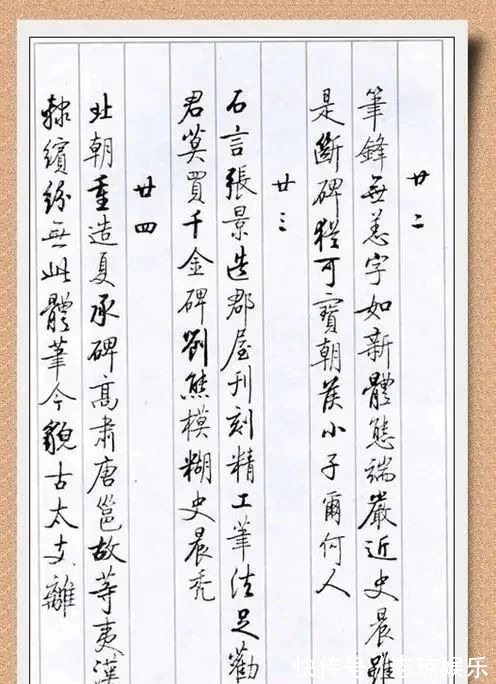 廿二
筆鋒無恙字如新體態端嚴近史晨雖
是斷碑猶可寶朝矦小子爾何人
廿三
石言張景造郡屋刊刻精工筆法足勸
君莫買千金碑劉熊模糊史晨禿
廿四
北朝重造夏承碑高肅唐邕故等夷漢
隸繽紛無此體筆今貌古太支離